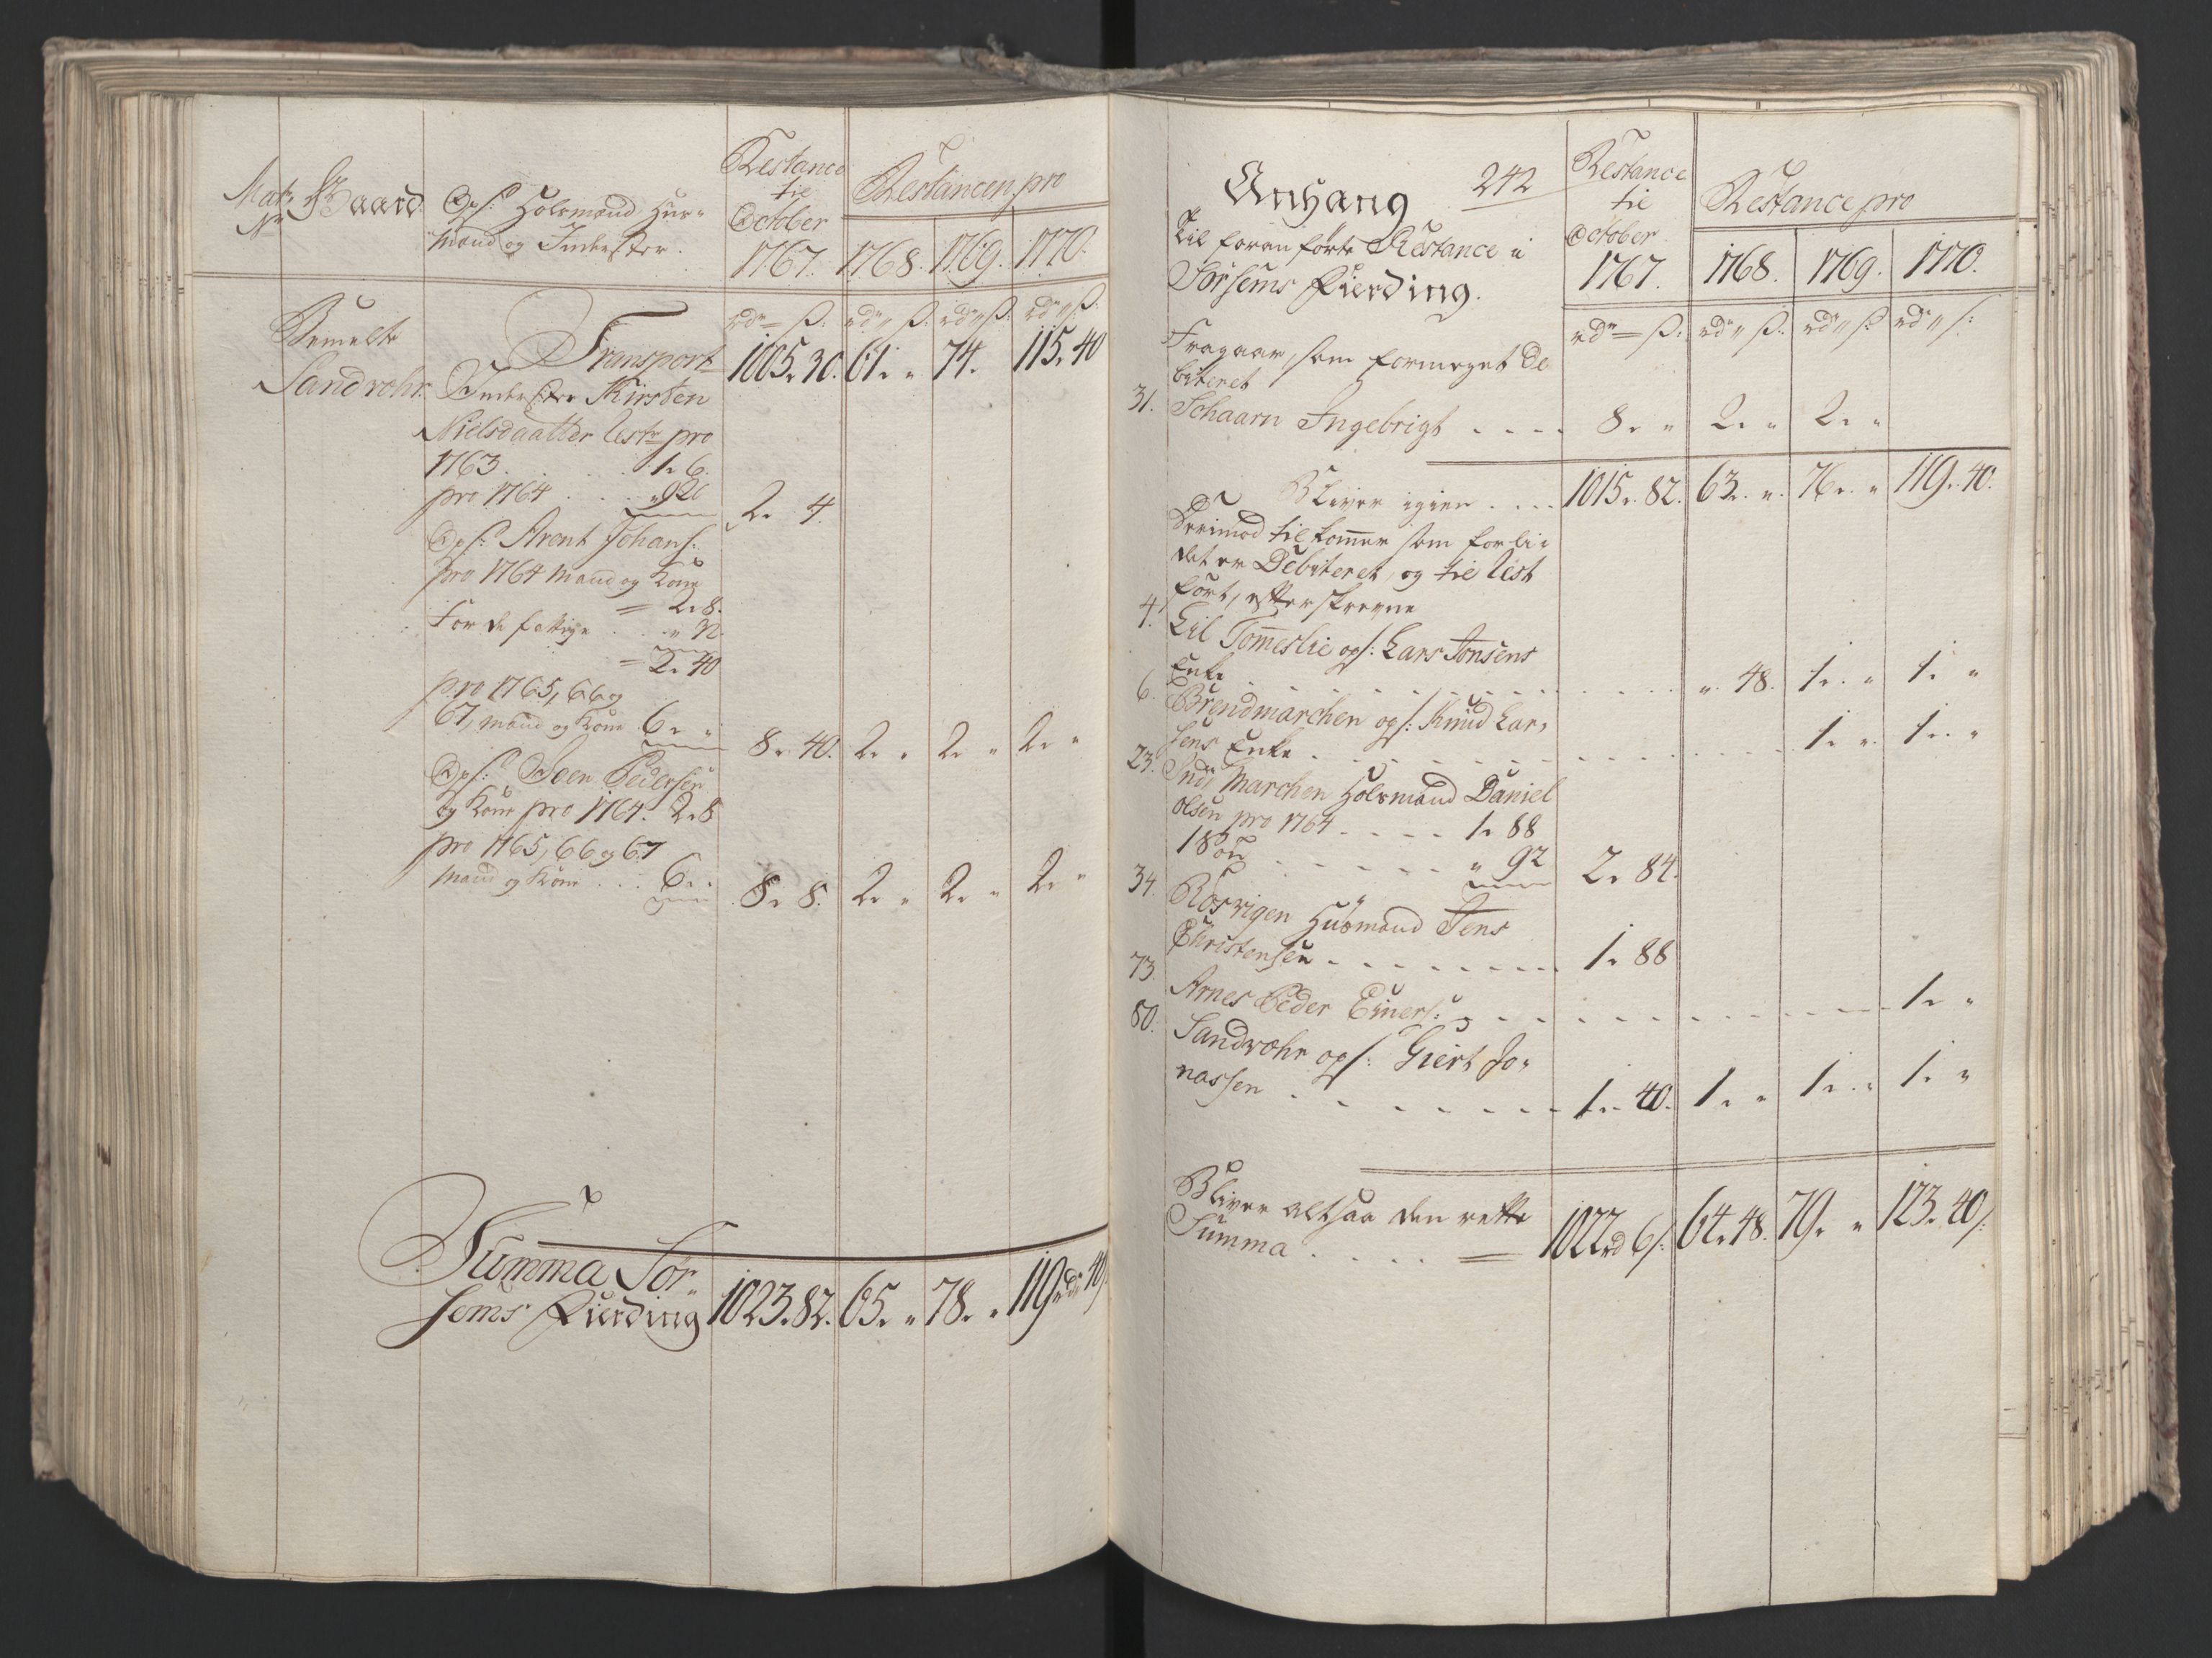 Mat: No
Gaard.
Ops: Holsmænd Huus-
mænd og Inderster.
Restance
til
October
1767.
Restancen pro
1768. 1769. 1770.
Bemelte
Sandvohr.
rdr ß: rdr ß: rdr ß: rdr ß:
Transport 1005. 30. 61. " 74. 115. 40
Inderster Kirsten
Nielsdaatter rest pro
1763 . . . . . 1. 6.
pro 1764 . . . . " 92 2. 4.
Ops: Arent Johans:
pro 1764 Mand og Kone
2. 8.
For de fattige . . . "
2. 40
pro 1765, 66 og
67, Mand og Kone 6. " 8. 40. 2. " 2. " 2. "
Ops: Soen Pedersen
og Kone pro 1764. 2. 8
pro 1765, 66 og 67
Mand og Kone . . . 6. " 8. 8. 2. " 2. " 2. "
Summa Sør-
sems Fierding 1023. 82. 65. " 78. " 119 rdr 40 ß
Anhang 242
Til foranførte Restance i
Sørsems Fierding.
Restance
til
October
1767.
Restance pro
1768. 1769. 1770.
rdr ß: rdr ß: rdr ß: rdr ß:
Fragaar, som formeget De
biteret
31. Schaarn Ingebrigt . . . . 8. " 2. " 2. "
Bliver igien . . . . 1015. 82. 63. " 76. " 119. 40.
Derimod tilkommer som for li
det er Debiteret, og til rest
ført, efterskrevne
4. Lil Tommeslie ops: Lars Jonsens
Enke . . . . . " 48. 1. " 1. "
6. Brendmarchen ops: Knud Lar-
sens Enke . . . . . 1. " 1. "
23. Ind Marchen Holsmand Daniel
Olsen pro 1764 . . . . 1. 88
. . . . " 92 2. 84.
34. Røsvigen Huusmand Jens
Christensen . . . . . . 1. 88
73. Arnes Peder Einers: . . . . . 1. "
80. Sandvohr ops: Giert Jo-
nassen . . . . . . 1. 40. 1. " 1. " 1. "
Bliver altsaa den rette
Summa . . . . . 1022 rd 6 ß: 64. 48. 79. " 123. 40 ß: